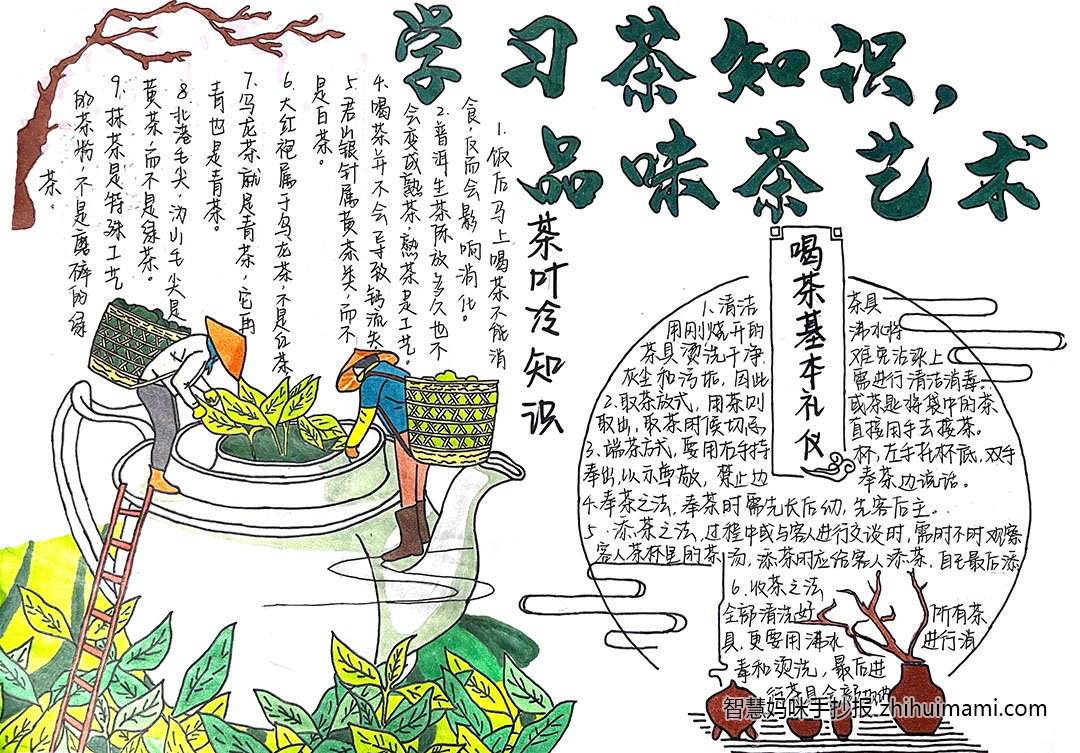 学习茶知识，
品味茶艺术
茶叶冷知识
1.饭后马上喝茶不能消
食，反而会影响消化。
2.普洱生茶陈放多久也不
会变成熟茶，熟茶是工艺
4.喝茶并不会导致钙流失
5.君山银针属黄茶类，而不
是白茶。
6.大红袍属于乌龙茶，不是红茶
7.乌龙茶就是青茶，它再
青也是青茶。
8.北港毛尖 沩山毛尖是
黄茶，而不是绿茶。
9.抹茶是特殊工艺
的茶粉，不是磨碎的绿
茶。
喝茶基本礼仪
1.清洁 茶具
用刚烧开的 沸水将
茶具烫洗干净 难免沾染上
灰尘和污垢，因此 需进行清洁消毒。
2.取茶方式，用茶则 或茶匙将袋中的茶
取出，取茶时候切忌 直接用手去接茶。
3.端茶方式，要用右手持 杯，左手托杯底，双手
奉出，以示尊敬，禁止边 奉茶边说话。
4.奉茶之法，奉茶时需先长后幼，先客后主。
5.添茶之法，过程中或与客人进行交谈时，需时不时观察
客人茶杯里的茶汤，添茶时应给客人添茶，自己最后添
6.收茶之法
全部清洗好 所有茶
具，更要用沸水 进行消
毒和烫洗，最后进
行茶具全部
智慧妈咪手抄报 zhihuimami.com